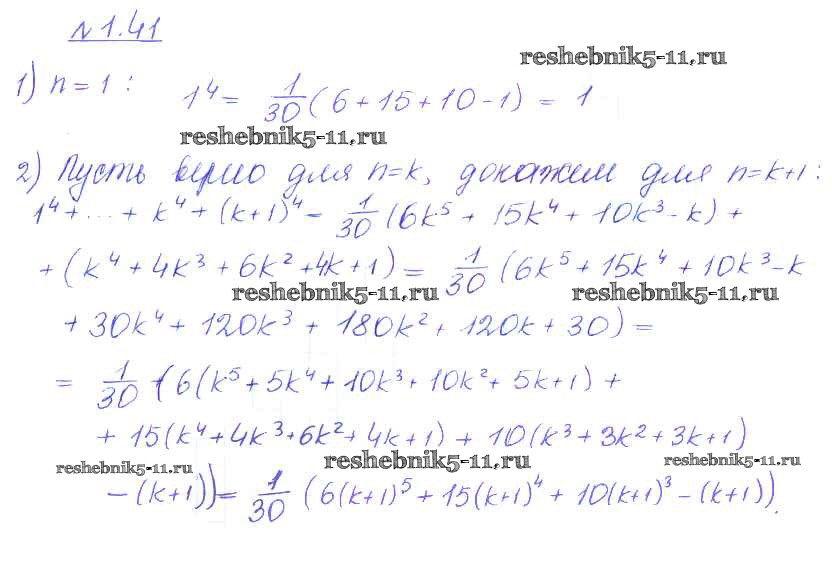 №1.41
reshebnik5-11.ru
1) n=1: 1⁴ = 1/30 (6+15+10-1) = 1
reshebnik5-11.ru
2) Пусть верно для n=k, докажем для n=k+1:
1⁴+...+ k⁴ + (k+1)⁴ = 1/30 (6k⁵ + 15k⁴ + 10k³ - k) +
+ (k⁴ + 4k³ + 6k² + 4k + 1) = 1/30 (6k⁵ + 15k⁴ + 10k³ - k
reshebnik5-11.ru reshebnik5-11.ru
+ 30k⁴ + 120k³ + 180k² + 120k + 30) =
= 1/30 (6(k⁵ + 5k⁴ + 10k³ + 10k² + 5k + 1) +
+ 15(k⁴ + 4k³ + 6k² + 4k + 1) + 10(k³ + 3k² + 3k + 1)
reshebnik5-11.ru reshebnik5-11.ru reshebnik5-11.ru
- (k+1)) = 1/30 (6(k+1)⁵ + 15(k+1)⁴ + 10(k+1)³ - (k+1)).